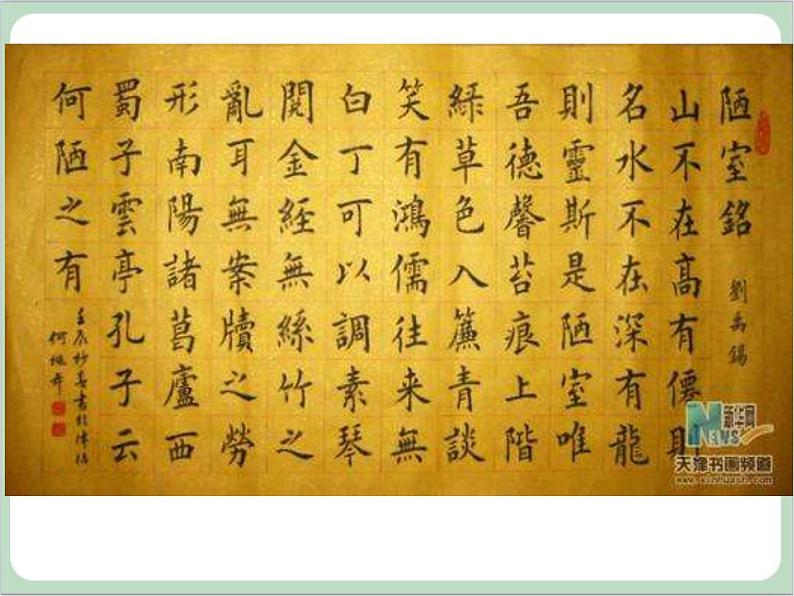 陋室銘
劉禹錫
山不在高有僊則
名水不在深有龍
則靈斯是陋室唯
吾德馨苔痕上階
綠草色入簾青談
笑有鴻儒往来無
白丁可以調素琴
閱金經無絲竹之
亂耳無案牘之勞
形南陽諸葛廬西
蜀子雲亭孔子云
何陋之有
壬辰杪春書於津沽
何
新华网
NEWS
天津书画频道